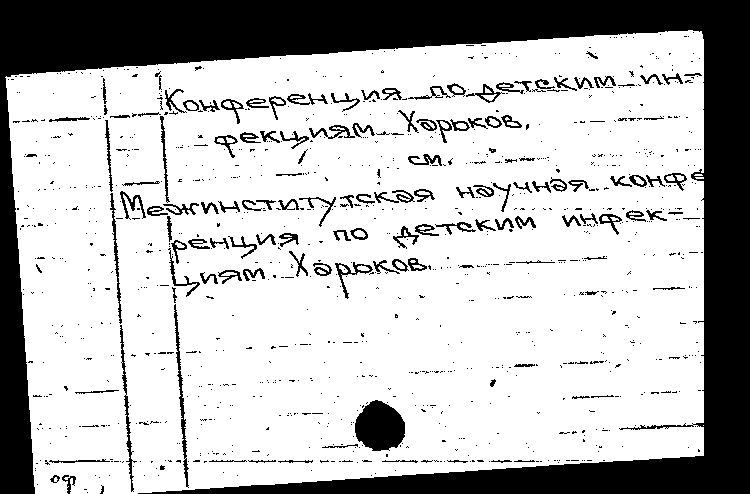 Конференция по детским ин-
фекциям Харьков.
см.
Межинститутская научная конфе
ренция по детским инфек-
циям. Харьков.
оф.